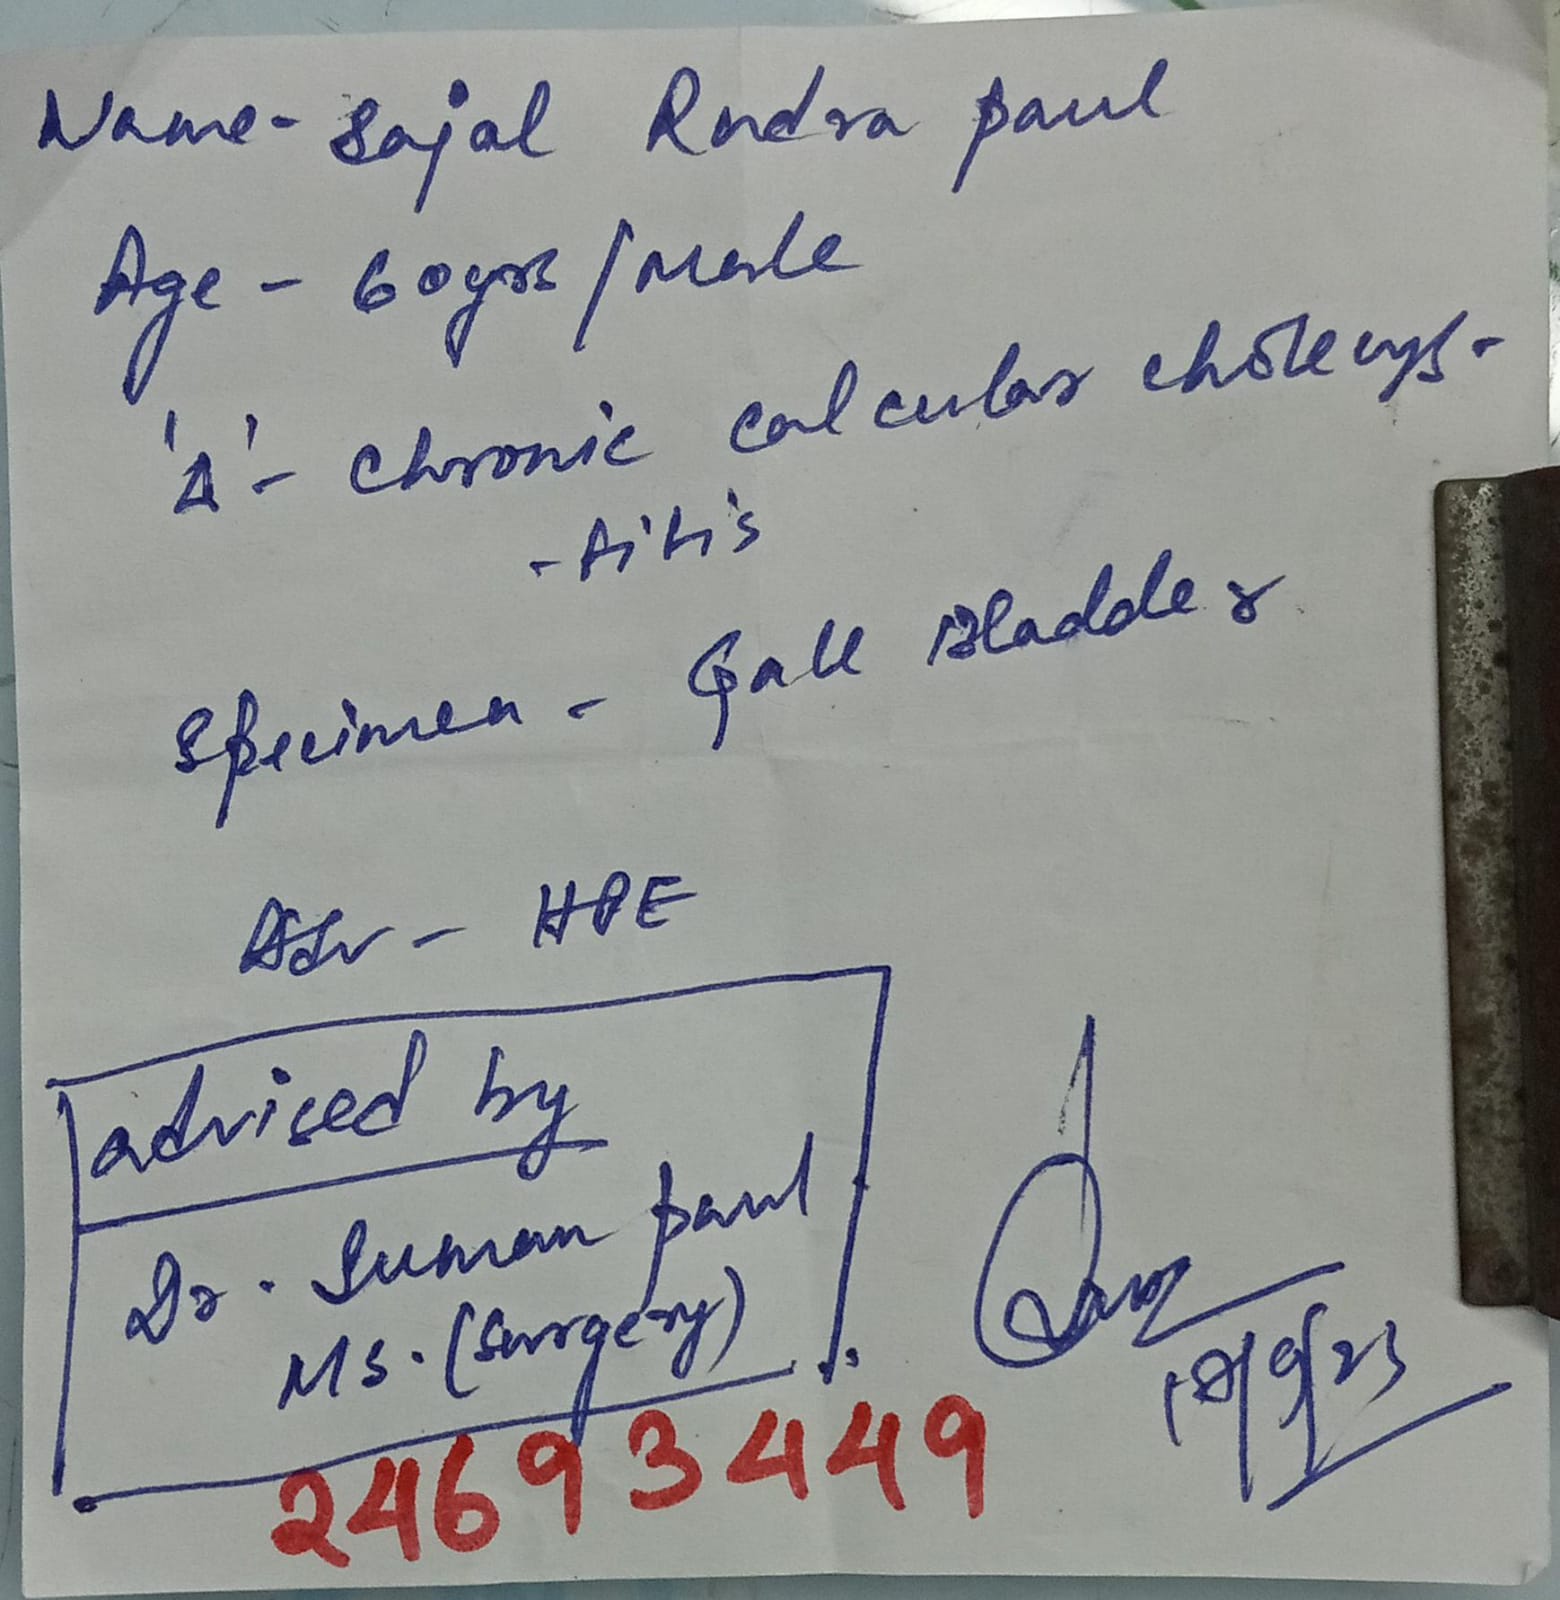 Name- Sajal Rudra paul
Age - 60yrs / Male
'Δ' - chronic calcular cholecys-
-titis
Specimen - Gall Bladder
Adv - HPE
advised by
Dr. Suman paul
MS. (Surgery)
18/9/23
24693449